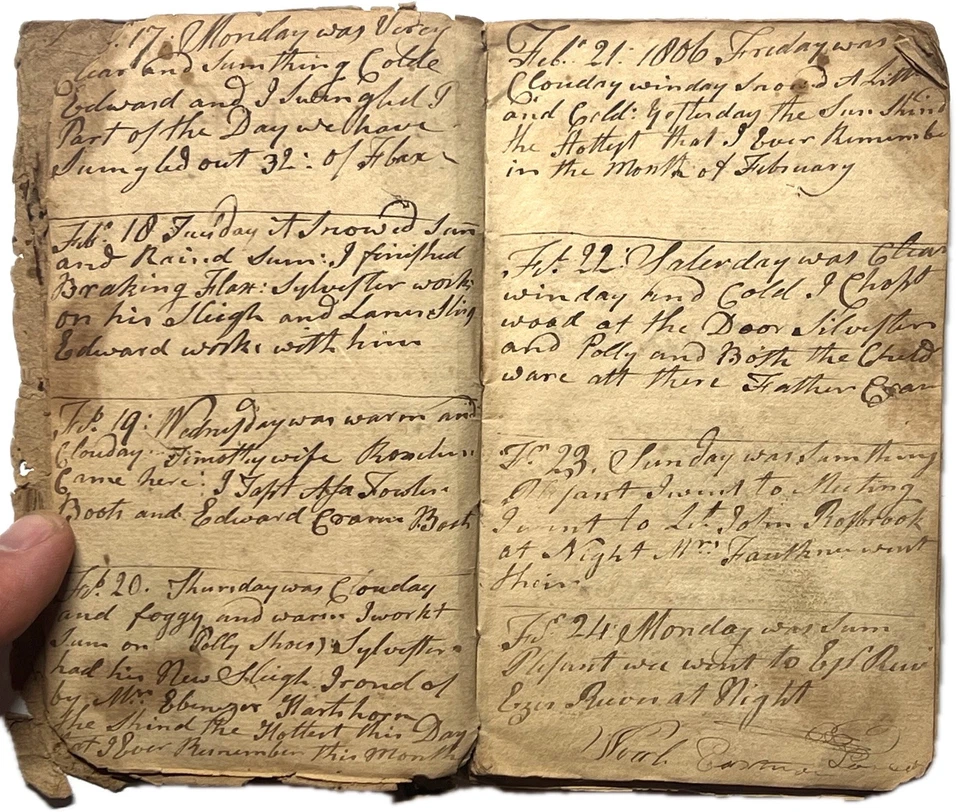 17: Monday was Verey
Clear and Sumthing Colde
Edward and I Swingled
Part of the Day we have
Swingled out 32: of Flax
Feb. 18 Tuesday it Snowed Sum
and Raind Sum: I finished
Braking Flax: Sylvester works
on his Sleigh and
Edward works with him
Feb. 19: Wednesday was warm and
Clouday Timothy wife
Came here: I Tapt Asa Fowler
Boots and Edward Boots
Feb. 20. Thursday was Clouday
and foggy and warm I workt
Sum on Polly Shoes: Sylvester
had his New Sleigh Irond of
by Mr. Ebenezer Hartshorn
the Shind the Hottest this Day
that I Ever Remember this Month
Feb. 21: 1806 Friday was
Clouday winday Snowd A Litt
and Cold: Yesterday the Sun Shind
the Hottest that I Ever Remembe
in the Month of February
Fe. 22: Saterday was Clear
winday and Cold I Chopt
wood at the Door Silvester
and Polly and Both the Child
ware att there Father
Fe. 23. Sunday was Sumthing
Plesant I went to Meeting
I went to Lt. John Rosbrook
at Night Mrs. went
their
Fe. 24: Monday was Sum
Plesant we went to
at Night